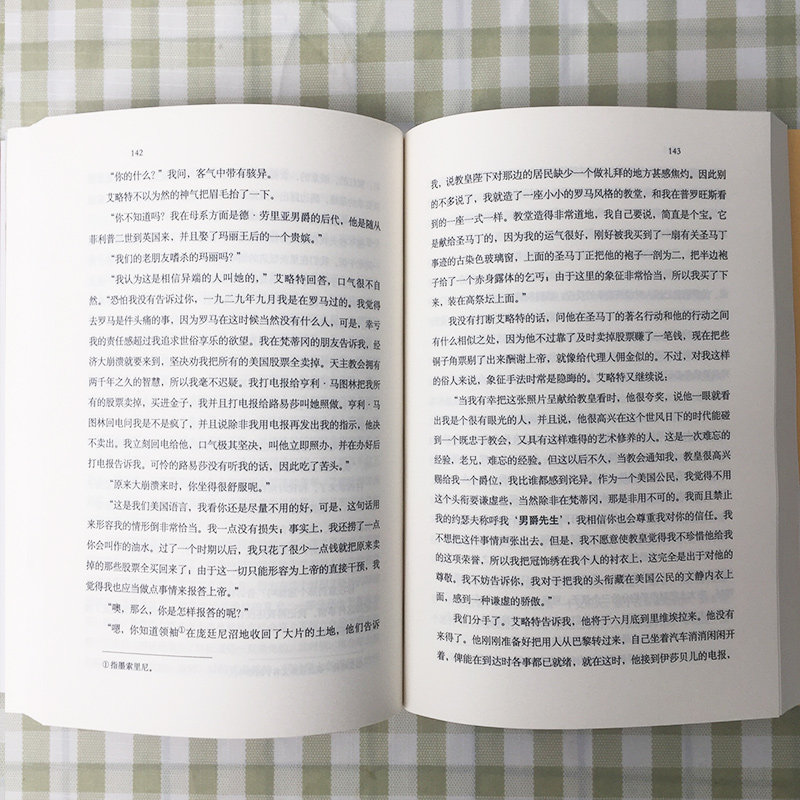 142
“你的什么？”我问，客气中带有骇异。
艾略特不以为然的神气把眉毛抬了一下。
“你不知道吗？我在母系方面是德·劳里亚男爵的后代，他是随从
菲利普二世到英国来，并且娶了玛丽王后的一个贵嫔。”
“我们的老朋友嗜杀的玛丽吗？”
“我认为这是相信异端的人叫她的，”艾略特回答，口气很不自
然。“恐怕我没有告诉过你，一九二九年九月我是在罗马过的。我觉得
去罗马是件头痛的事，因为罗马在这时候当然没有什么人，可是，幸亏
我的责任感超过我追求世俗享乐的欲望。我在梵蒂冈的朋友告诉我，经
济大崩溃就要来到，坚决劝我把所有的美国股票全卖掉。天主教会拥有
两千年之久的智慧，所以我毫不迟疑。我打电报给亨利·马图林把我所
有的股票卖掉，买进金子，我并且打电报给路易莎叫她照做。亨利·马
图林回电问我是不是疯了，并且说除非我用电报再发出我的指示，他决
不卖出。我立刻回电给他，口气极其坚决，叫他立即照办，并在办好后
打电报告诉我。可怜的路易莎没有听我的话，因此吃了苦头。”
“原来大崩溃来时，你坐得很舒服呢。”
“这是我们美国语言，我看你还是尽量不用的好，可是，这句话用
来形容我的情形倒非常恰当。我一点没有损失；事实上，我还捞了一点
你会叫作的油水。过了一个时期以后，我只花了很少一点钱就把原来卖
掉的那些股票全买回来了；由于这一切只能形容为上帝的直接干预，我
觉得我也应当做点事情来报答上帝。”
“噢，那么，你是怎样报答的呢？”
“嗯，你知道领袖①在庞廷尼沼地收回了大片的土地，他们告诉
①指墨索里尼。
143
我，说教皇陛下对那边的居民缺少一个做礼拜的地方甚感焦灼。因此别
的不多说了，我就造了一座小小的罗马风格的教堂，和我在普罗旺斯看
到的一座一式一样。教堂造得非常道地，我自己要说，简直是个宝。它
是献给圣马丁的，因为我的运气很好，刚好被我买到了一扇有关圣马丁
事迹的古染色玻璃窗，上面的圣马丁正把他的袍子一剖为二，把半边袍
子给了一个赤身露体的乞丐；由于这里的象征非常恰当，所以我买了下
来，装在高祭坛上面。”
我没有打断艾略特的话，问他在圣马丁的著名行动和他的行动之间
有什么相似之处，因为他不过靠了及时卖掉股票赚了一笔钱，现在把些
铜子角票剔了出来酬谢上帝，就像给代理人佣金似的。不过，对我这样
的俗人来说，象征手法时常是隐晦的。艾略特又继续说：
“当我有幸把这张照片呈献给教皇看时，他很夸奖，说他一眼就看
出我是个很有眼光的人，并且说，他很高兴在这个世风日下的时代能碰
到一个既忠于教会，又具有这样难得的艺术修养的人。这是一次难忘的
经验，老兄，难忘的经验。但这以后不久，当教会通知我，教皇很高兴
赐给我一个爵位，我比谁都感到诧异。作为一个美国公民，我觉得不用
这个头衔要谦虚些，当然除非在梵蒂冈，那是非用不可的。我而且禁止
我的约瑟夫称呼我‘男爵先生’，我相信你也会尊重我对你的信任。我
不想把这件事情声张出去。但是，我不愿意使教皇觉得我不珍惜他给我
的这项荣誉，所以我把冠饰绣在我个人的衬衣上，这完全是出于对他的
尊敬。我不妨告诉你，我对于把我的头衔藏在美国公民的文静内衣上
面，感到一种谦虚的骄傲。”
我们分手了。艾略特告诉我，他将于六月底到里维埃拉来。他没有
来得了。他刚刚准备好把用人从巴黎转过来，自己坐着汽车消消闲闲开
着，俾能在到达时各事都已就绪，就在这时，他接到伊莎贝儿的电报，